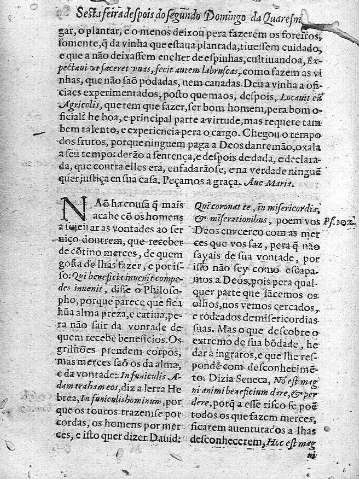 Sesta feira despois do segundo Domingo da Quaresm
gar, o plantar, e o menos deixou pera fazerem os foreiros,
somente, q̃ da vinha que estaua plantada, tiuessem cuidado,
e que a não deixassem encher de espinhas, cultiuandoa, Ex-
pectaui vt faceret vuas, fecit autem labruscas, como fazem as vi
nhas, que não são podadas, nem cauadas. Deu a vinha a offi-
ciaes experimentados, posto que maos, despois, Locauit eã
Agricolis, que tem que fazer, ser bom homem, pera bom o-
ficial? he hoa, e principal parte a virtude, mas requere tam
bem talento, e experiencia pera o cargo. Chegou o tempo
dos frutos, porque ninguem paga a Deos dante mão, oxala
a seu tempo derão a sentença, e despois de dada, e declara-
da, que contra elles era, enfadarãose, e na verdade ninguem
quer justiça em sua casa. Peçamos a graça. Aue Maria.
NAõ ha cousa q̃ mais
acabe cõ os homens
a sueitar as vontades ao ser
uiço doutrem, que receber
de cõtino merces, de quem
gosta de lhas fazer, e por is-
so: Qui beneficia inuenit compe-
des inuenit, disse o Philoso-
pho, porque parece que fica
hũa alma preza, e catiua, pe-
ra não sair da vontade de
quem recebe beneficios. Os
grilhões prendem corpos,
mas merces saõ os da alma,
e da vontade: In funiculis A-
dam traham eos, diz a letra He
brea, In funiculis hominum, por
que os touros trazense por
cordas, os homens por mer-
ces, e isto quer dizer Dauid:
Qui coronat te, in misericordia,
& miserationibus, poem vos
Deos em cerco com as mer
ces que vos faz, pera q̃ não
sayais de sua vontade, por
isso não sey como escapa-
mos a Deos, pois pera qual-
quer parte que lãcemos os
olhos, nos vemos cercados,
e rodeados de misericordias
suas. Mas o que descobre o
extremo de sua bõdade, he
dar a ingratos, e que lhe res-
pondé com desconhecimen-
to. Dizia Seneca, Nõ est mag
ni animi beneficium dare, & per
dere, porq̃ a esse risco se poẽ
todos os que fazem merces,
ficarem auenturados a lhas
desconhecerem, Hoc est mag
ni
Ps. 102.